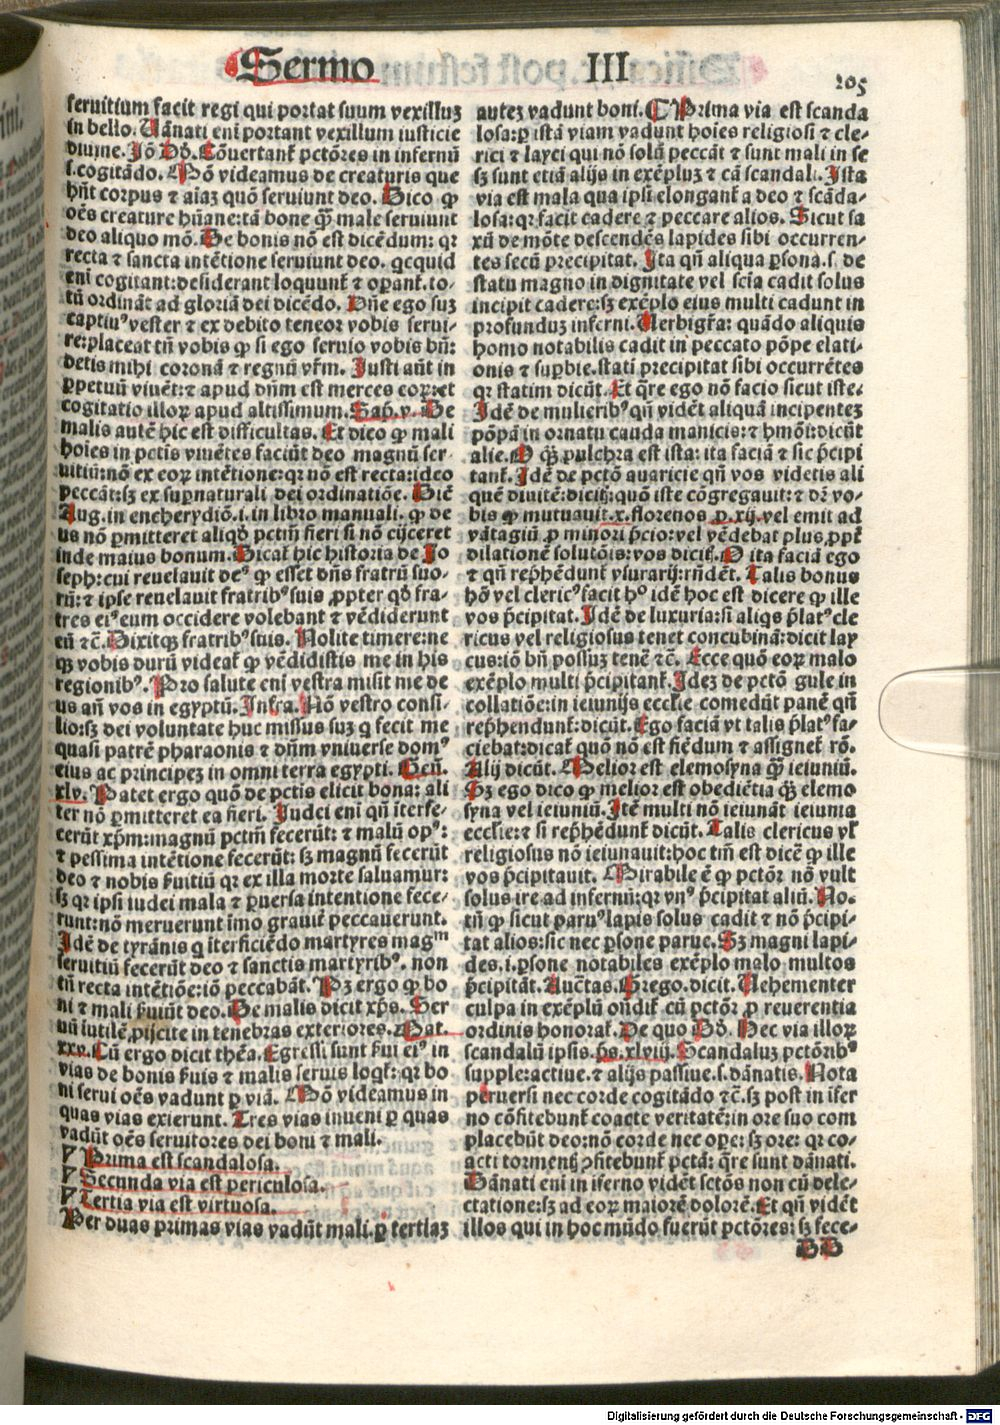 Sermo III
205
seruitium facit regi qui portat suum vexilluʒ
in bello. Dãnati enĩ portant vexillum iusticie
diuine. Jõ Dõ. Cõuertanť pctõres in infernũ
i. cogitãdo. Mõ videamus de creaturis que
hñt corpus ⁊ aĩaʒ quõ seruiunt deo. Dico ꝙ
oẽs creature hũane: tã bone q̃ʒ male seruiunt
deo aliquo mõ. De bonis nõ est dicẽdum: qꝛ
recta ⁊ sancta intẽtione seruiunt deo. qcquid
enĩ cogitant: desiderant loquunť ⁊ operanť. to-
tũ ordinãt ad gloriã dei dicẽdo. Dñe ego suʒ
captiuꝰ vester ⁊ ex debito teneor vobis serui-
re: placeat tñ vobis ꝙ si ego seruio vobis bñ:
detis mihi coronã ⁊ regnũ vr̃m. Justi aũt in
ꝑpetuũ viuẽt: ⁊ apud dñm est merces eoꝝ: et
cogitatio illoꝝ apud altissimum. Sap. v. De
malis autẽ hic est difficultas. Et dico ꝙ mali
hoĩes in pctis viuẽtes faciũt deo magnũ ser-
uitiũ: nõ ex eoꝝ intẽtione: qꝛ nõ est recta: ideo
peccãt: sʒ ex suꝑnaturali dei ordinatiõe. Diẽ
Aug. in encherydiõ. i. in libro manuali. ꝙ de
us nõ ꝑmitteret aliqđ pctm̃ fieri si nõ eijceret
inde maius bonum. Dicať hic historia de Jo
seph: cui reuelauit deꝰ ꝙ esset dñs fratrũ suo-
rũ: ⁊ ipse reuelauit fratribꝰ suis ꝓpter qđ fra-
tres eiꝰ eum occidere volebant ⁊ vẽdiderunt
eũ ⁊c̃. Dixitqʒ fratribꝰ suis. Nolite timere: ne
qʒ vobis durũ videať ꝙ vẽdidistis me in his
regionibꝰ. Pro salute enĩ vestra misit me de
us añ vos in egyptũ. Infra. Nõ vestro consi-
lio: sʒ dei voluntate huc missus suʒ q fecit me
quasi patrẽ pharaonis ⁊ dñm vniuerse domꝰ
eius ac principeʒ in omni terra egypti. Geñ.
xlv. Patet ergo quõ de pctis elicit bona: ali
ter nõ ꝑmitteret ea fieri. Judei enĩ qñ ĩterfe-
cerũt xp̃m: magnũ pctm̃ fecerũt: ⁊ malũ opꝰ:
⁊ pessima intẽtione fecerũt: sʒ magnũ fecerũt
deo ⁊ nobis ẜuitiũ qꝛ ex illa morte saluamur:
sʒ qꝛ ipsi iudei mala ⁊ ꝑuersa intentione fece-
runt: nõ meruerunt ĩmo grauiẽ peccauerunt.
Jdẽ de tyrãnis q ĩterficiẽdo martyres magᵐ
seruitiũ fecerũt deo ⁊ sanctis martyribꝰ. non
tñ recta intẽtiõe: iõ peccabãt. Pʒ ergo ꝙ bo
ni ⁊ mali ẜuiũt deo. De malis dicit xp̃s. Ser
uũ iutilẽ ꝓijcite in tenebras exteriores. Mat.
xxv. Cũ ergo dicit thẽa. Egressi sunt ẜui eiꝰ in
vias de bonis ẜuis ⁊ malis seruis loqť: qꝛ bo
ni serui oẽs vadunt ꝑ viã. Mõ videamus in
quas vias exierunt. Tres vias inueni ꝑ quas
vadũt oẽs seruitores dei boni ⁊ mali.
Prima est scandalosa.
Secunda via est periculosa.
Tertia via est virtuosa.
Per duas primas vias vadũt mali. ꝑ tertiaʒ
auteʒ vadunt boni. Prima via est scanda
losa: ꝑ istã viam vadunt hoĩes religiosi ⁊ cle-
rici ⁊ layci qui nõ solũ peccãt ⁊ sunt mali in se
sʒ sunt etiã alijs in exẽpluʒ ⁊ cã scandali. Ista
via est mala qua ipsi elonganť a deo ⁊ scãda-
losa: qꝛ facit cadere ⁊ peccare alios. Sicut sa
xũ de mõte descendẽs lapides sibi occurren-
tes secũ precipitat. Ita qñ aliqua ꝑsona. s. de
statu magno in dignitate vel scĩa cadit solus
incipit cadere: sʒ exẽplo eius multi cadunt in
profunduʒ inferni. Uerbigr̃a: quãdo aliquis
homo notabilis cadit in peccato põpe elati-
onis ⁊ suꝑbie. statĩ precipitat sibi occurrẽtes
qꝛ statim dicũt. Et q̃re ego nõ facio sicut iste.
Jdẽ de mulieribꝰ qñ vidẽt aliquã incipenteʒ
põpã in ornatu cauda manicis: ⁊ hmõi: dicũt
alie. O q̃ʒ pulchra est ista: ita faciã ⁊ sic p̃cipi
tanť. Jdẽ de pctõ auaricie qñ vos videtis ali
quẽ diuitẽ: dicitʒ: quõ iste cõgregauit: ⁊ dr̃ vo-
bis ꝙ mutuauit .x. florenos ꝓ .xij. vel emit ad
vãtagiũ ꝓ minori p̃cio: vel vẽdebat plus ꝓpť
dilationẽ solutõis: vos dicitʒ. O ita faciã ego
⁊ qñ rep̃hẽdunť vsurarij: rñdẽt. Talis bonus
hõ vel clericꝰ facit hº idẽ hoc est dicere ꝙ ille
vos p̃cipitat. Jdẽ de luxuria: si aliqs p̃latꝰ cle
ricus vel religiosus tenet concubinã: dicit lay
cus: iõ bñ possuʒ tenẽ ⁊c̃. Ecce quõ eoꝝ malo
exẽplo multi p̃cipitanť. Jdeʒ de pctõ gule in
collatiõe: in ieiunijs ecclĩe comedũt panẽ qñ
rep̃hendunť: dicũt. Ego faciã vt talis p̃latꝰ fa-
ciebat: dicať quõ nõ est fiẽdum ⁊ assigneť rõ.
Alij dicũt. Melior est elemosyna q̃ʒ ieiuniũ.
Sʒ ego dico ꝙ melior est obediẽtia q̃ʒ elemo
syna vel ieiuniũ. Jtẽ multi nõ ieiunãt ieiunia
ecclĩe: ⁊ si rep̃hẽdunť dicũt. Talis clericus vľ
religiosus nõ ieiunauit: hoc tm̃ est dicẽ ꝙ ille
vos p̃cipitauit. Mirabile ẽ ꝙ pctõr nõ vult
solus ire ad infernũ: qꝛ vnꝰ p̃cipitat aliũ. No-
tñ ꝙ sicut paruꝰ lapis solus cadit ⁊ nõ p̃cipi-
tat alios: sic nec ꝑsone parue. Sʒ magni lapi-
des. i. ꝑsone notabiles exẽplo malo multos
p̃cipitãt. Auctas. Grego. dicit. Uehementer
culpa in exẽplũ oñdiť cũ pctõr ꝓ reuerentia
ordinis honorať. De quo Dõ. Hec via illoꝝ
scandalũ ipsis. ps. xlviij. Scandaluʒ pctõribꝰ
supple: actiue. ⁊ alijs passiue. s. dãnatis. Nota
peruersi nec corde cogitãdo ⁊c̃. sʒ post in ĩfer
no cõfitebunť coacte veritatẽ: in ore suo com
placebũt deo: nõ corde nec oꝑe: sʒ ore: qꝛ co-
acti tormentʒ ↄfitebunť pctã: q̃re sunt dãnati.
Dãnati enĩ in ĩferno vidẽt sctõs non cũ dele-
ctatione: sʒ ad eoꝝ maiorẽ dolorẽ. Et qñ vidẽt
illos qui in hoc mũdo fuerũt pctõres: sʒ fece-
DD
Digitalisierung gefördert durch die Deutsche Forschungsgemeinschaft - DFG